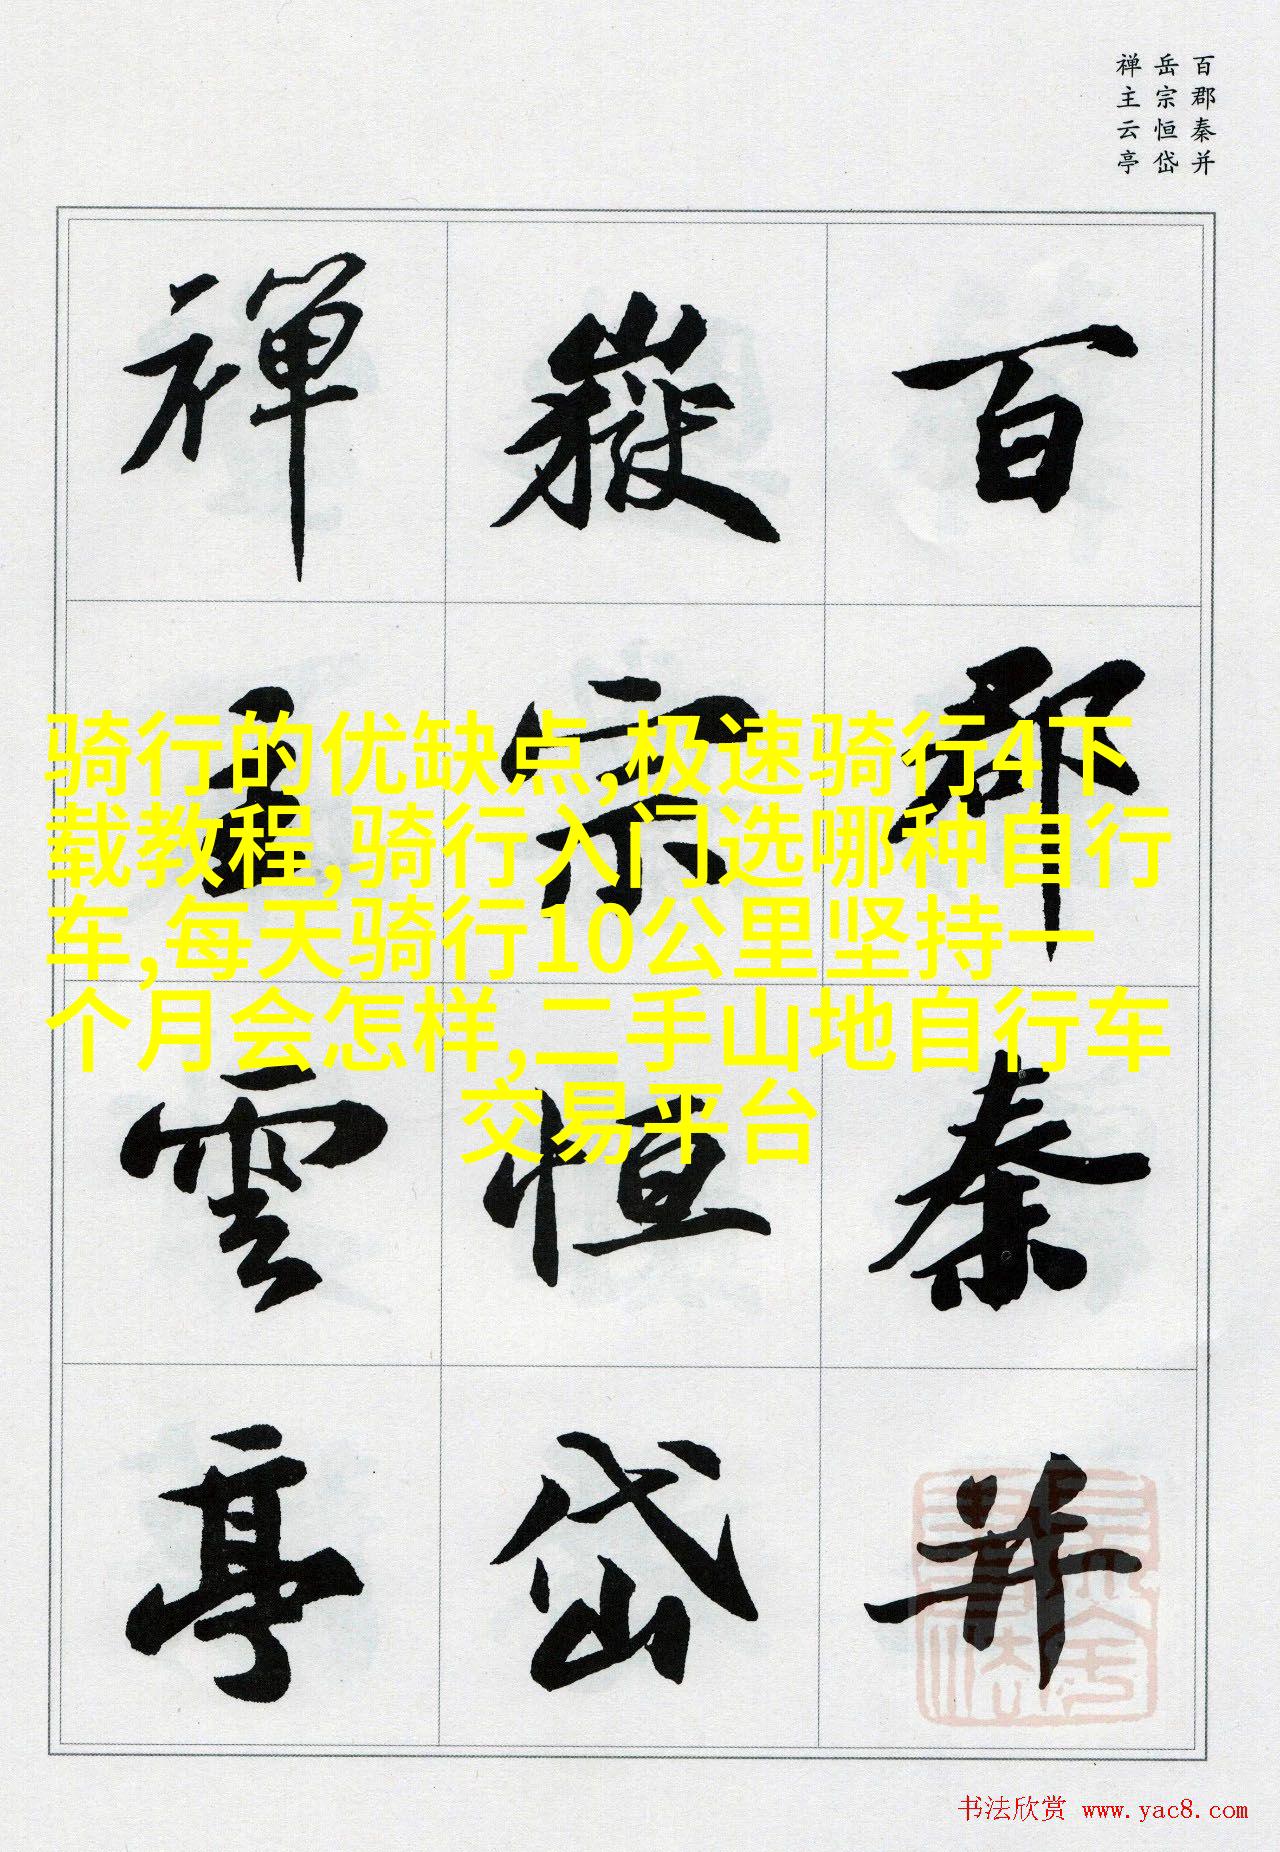 百郡秦并
岳宗恒岱
禅主云亭
百郡秦并
嶽宗恒岱
禪主雲亭
骑行的优缺点,极速骑行4下
载教程,骑行入门选哪种自行
车,每天骑行10公里坚持一
个月会怎样,二手山地自行车
交易平台
书法欣赏 www.yac8.com